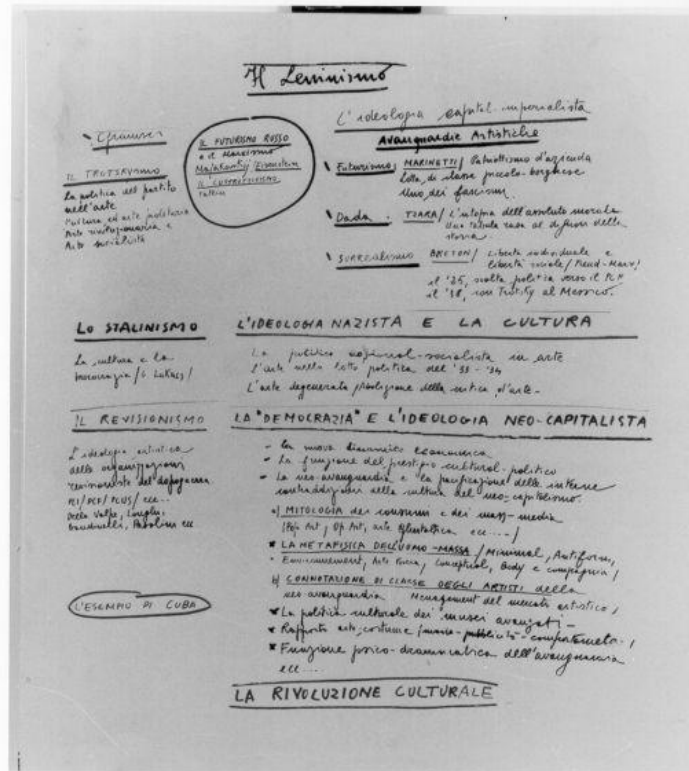 Il Leninismo
Gramsci
IL TROTSKYSMO
La politica del partito
nell'arte
Cultura ed arte proletaria
Arte rivoluzionaria e
Arte socialista
IL FUTURISMO RUSSO
e il Marxismo
Majakovskij/Eisenstein
IL COSTRUTTIVISMO
Tatlin
L'ideologia capital-imperialista
Avanguardie Artistiche
Futurismo; MARINETTI/ Patriottismo d'azienda
Lotta di classe piccolo-borghese
dei fascismi.
Dada. TZARA/ L'utopia dell'assoluto morale
Una tabula rasa al di fuori della
storia.
SURREALISMO BRETON/ Libertà individuale e
libertà sociale/ Freud-Marx/
il '25, svolta politica verso il PCF
il '38, con Trotsky al Messico.
LO STALINISMO
La cultura e la
burocrazia/ Lukacs/
L'IDEOLOGIA NAZISTA E LA CULTURA
La politica nazional-socialista in arte
L'arte nella lotta politica del '33-'34
L'arte degenerata/ della critica d'arte-
IL REVISIONISMO
L'ideologia artistica
delle organizzazioni
revisioniste del dopoguerra
PCI/PCF/PCUS/ ecc...
Della Volpe, Longhi,
Pasolini ecc
L'ESEMPIO DI CUBA
LA "DEMOCRAZIA" E L'IDEOLOGIA NEO-CAPITALISTA
- La nuova dinamica economica
- La funzione del prestigio cultural-politico
- La neo-avanguardia e la pacificazione delle interne
contraddizioni della cultura del neo-capitalismo.
a) MITOLOGIA dei consumi e dei mass-media
(Pop Art, Op Art, arte ecc..../
* LA METAFISICA DELL'UOMO-MASSA /Minimal, Antiform,
Environnement, Arte Povera, Conceptual, Body e compagnia/
b) CONNOTAZIONE DI CLASSE DEGLI ARTISTI della
neo avanguardia Management del mercato artistico/
* La politica culturale dei musei avanzati-
* Rapporto arte, costume /moda-pubblicità-comportamento-/
* Funzione psico-drammatica dell'avanguardia
ecc....
LA RIVOLUZIONE CULTURALE